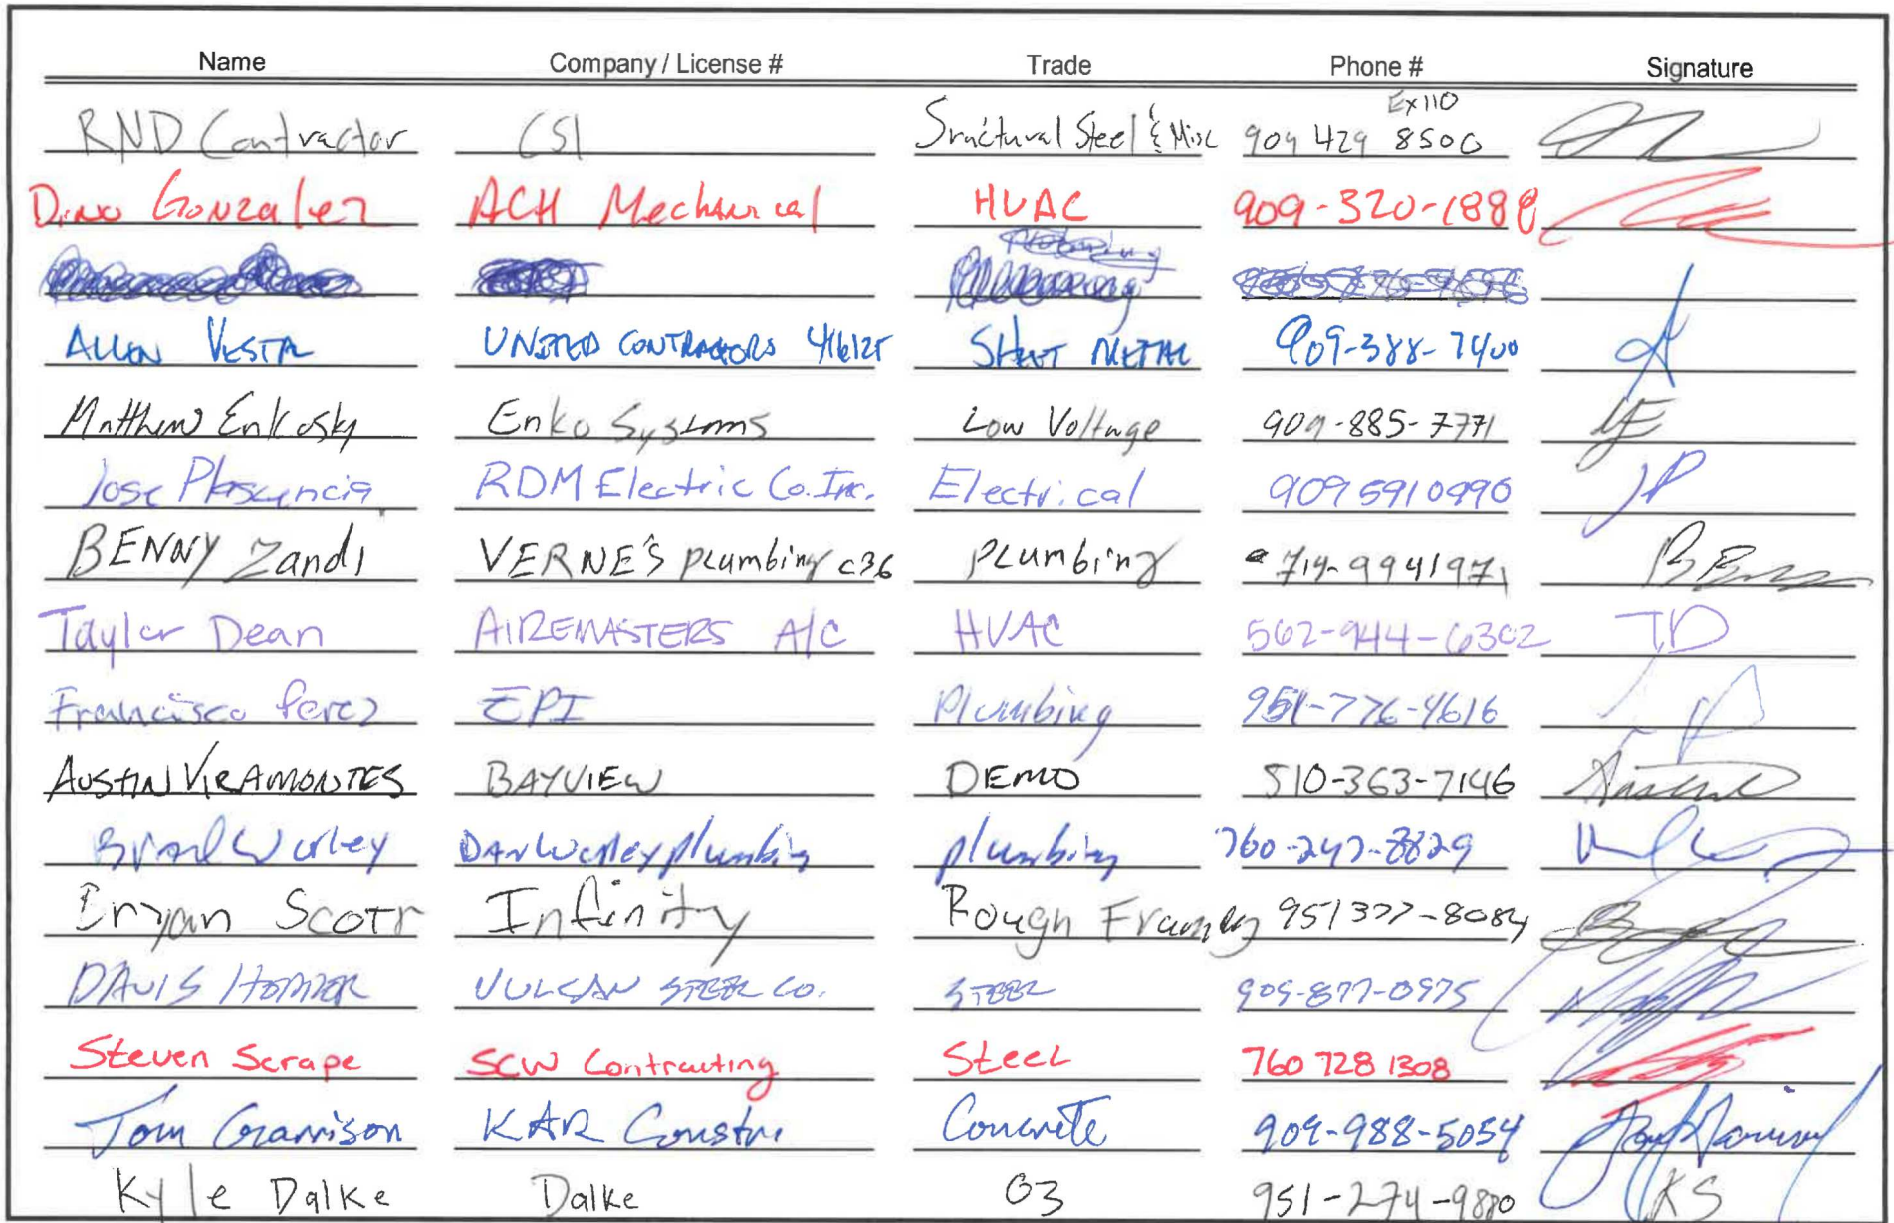 Name Company / License # Trade Phone # Signature
Ex110
RND Contractor CSI Sructural Steel & Misc 909 429 8500
Dino Gonzalez ACH Mechanical HVAC 909-320-1888
ALLEN VESTA UNITED CONTRACTORS 416125 SHEET METAL 909-388-7400
Matthew Enkosky Enko Systems Low Voltage 909-885-7771
Jose Plascencia RDM Electric Co. Inc. Electrical 9095910990 JP
BENNY Zandi VERNE'S plumbing c36 plumbing 714-9941971
Taylor Dean AIREMASTERS A/C HVAC 562-944-6302 TD
Francisco Perez EPI Plumbing 951-776-4616
AUSTIN VIRAMONTES BAYVIEW DEMO 510-363-7146
Brad Worley Dan Worley plumbing plumbing 760-247-8829
Bryan Scott Infinity Rough Framing 951 377-8084
DAVIS VULCAN STEEL CO. STEEL 909-877-0975
Steven Scrape SCW Contracting Steel 760 728 1308
Tom Garrison KAR Constru Concrete 909-988-5054
Kyle Dalke Dalke 03 951-274-9880 KS